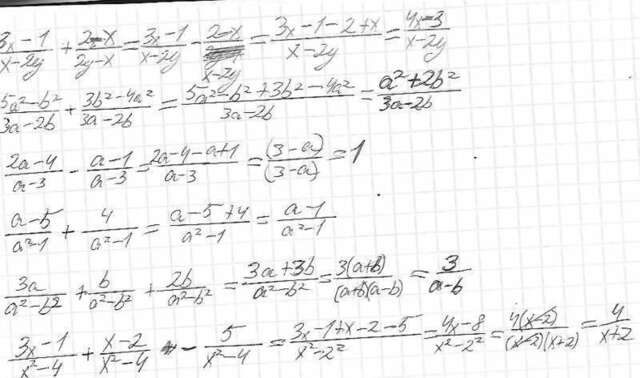 3x-1/x-2y + 2-x/2y-x = 3x-1/x-2y - 2-x/x-2y = 3x-1-2+x/x-2y = 4x-3/x-2y
5a²-b²/3a-2b + 3b²-4a²/3a-2b = 5a²-b²+3b²-4a²/3a-2b = a²+2b²/3a-2b
2a-4/a-3 - a-1/a-3 = 2a-4-a+1/a-3 = (3-a)/(3-a) = 1
a-5/a²-1 + 4/a²-1 = a-5+4/a²-1 = a-1/a²-1
3a/a²-b² + b/a²-b² + 2b/a²-b² = 3a+3b/a²-b² = 3(a+b)/(a+b)(a-b) = 3/a-b
3x-1/x²-4 + x-2/x²-4 - 5/x²-4 = 3x-1+x-2-5/x²-2² = 4x-8/x²-2² = 4(x-2)/(x-2)(x+2) = 4/x+2